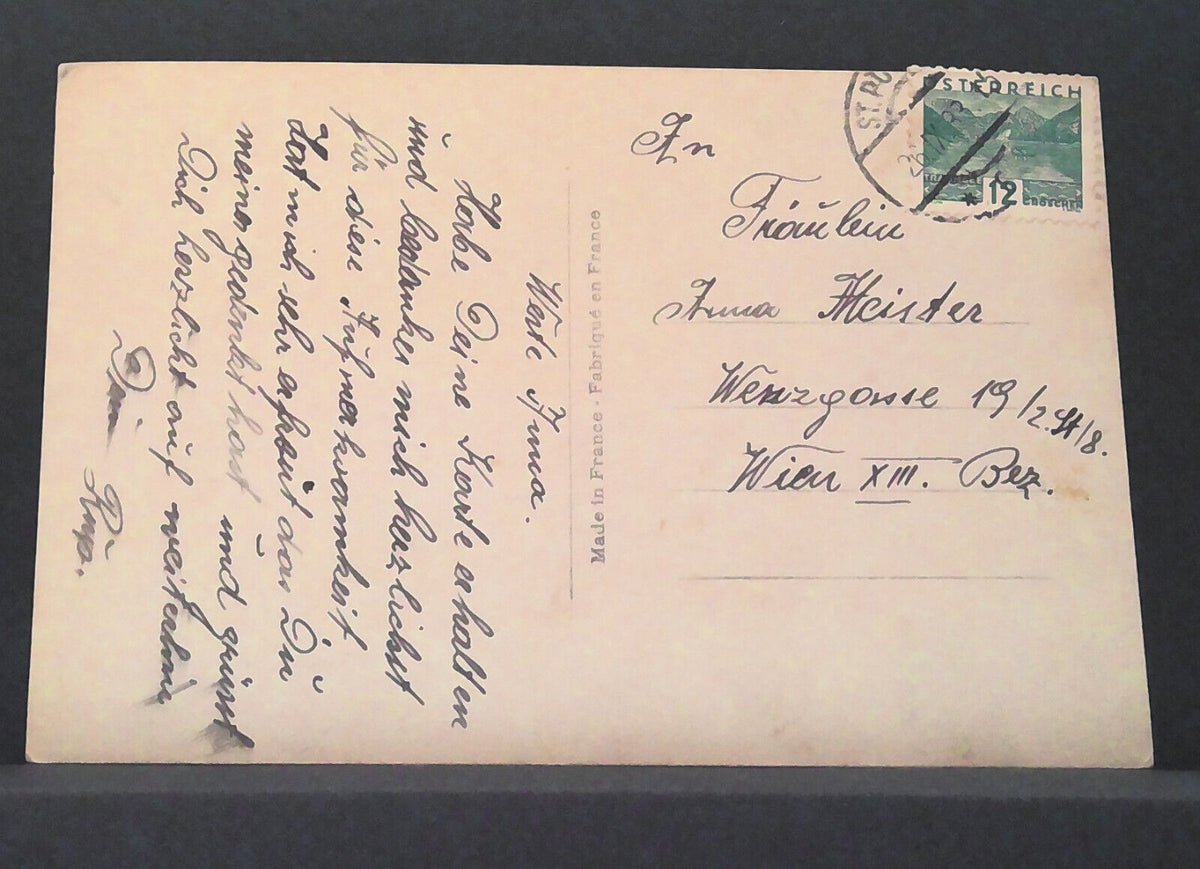 Werte Anna.
Habe Deine Karte erhalten
und bedanke mich herzlichst
für diese Aufmerksamkeit
hat mich sehr erfreut das Du
meiner gedenkt hast und grüsst
Dich herzlichst auf weiterhin
Dein
Made in France · Fabriqué en France
ÖSTERREICH
12 GROSCHEN
ST. PÖ
An
Fräulein
Anna Meister
Wenzgasse 19/2. St/8.
Wien XIII. Bez.